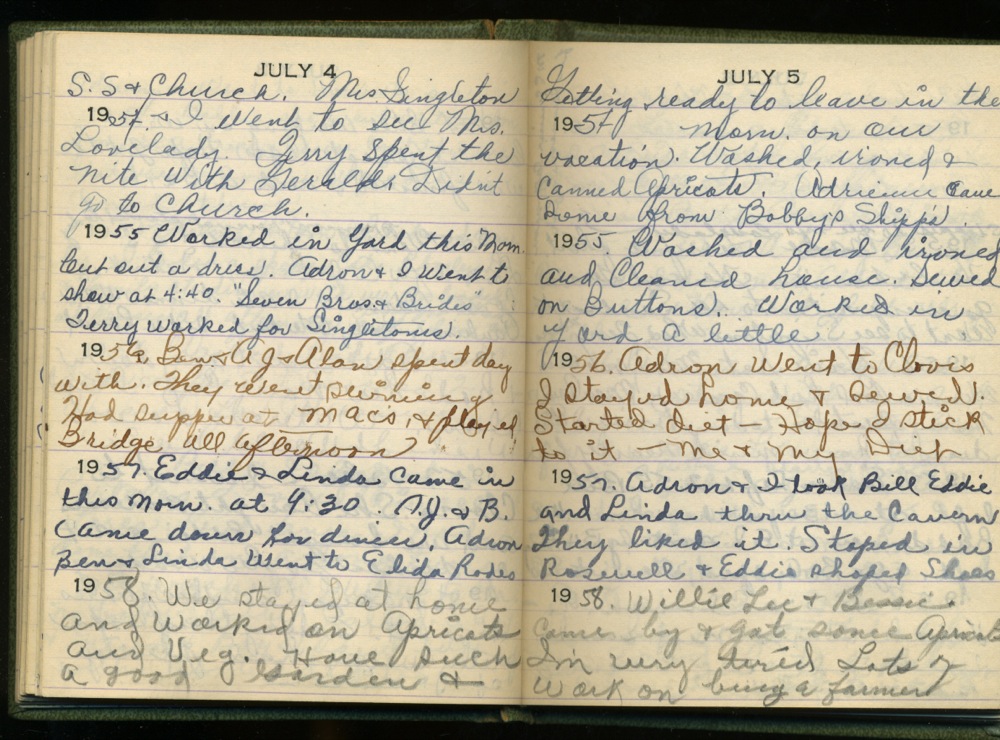 JULY 4
S. S & Church. Mrs Singleton
1954. & I went to see Mrs.
Lovelady. Terry Spent the
nite with Geralds Didn't
go to Church.
1955 Worked in Yard this Morn.
Cut out a dress. Adron & I went to
show at 4:40. "Seven Bros. & Brides"
Terry worked for Singletons.
1956. Ben & A J & Alan spent day
with. They went swiming
Had supper at Macs, & played
Bridge all afternoon
1957. Eddie & Linda Came in
this Morn. at 9:30. A.J. & B.
Came down for dinner. Adron
Ben & Linda Went to Elida Rodeo
1958. We stayed at home
and Worked on Apricots
and Veg. Have such
a good Garden &
JULY 5
Getting ready to leave in the
1954 Morn. on our
vacation. Washed, ironed &
Canned Apricots. Adrienne Came
home from Bobby Shipp's
1955. Washed and ironed
and Cleaned house. Sewed
on Buttons. Worked in
Yard a little
1956. Adron Went to Clovis
I stayed home & sewed.
Started diet - Hope I stick
to it - Me & My Diet
1957. Adron & I took Bill Eddie
and Linda thru the Cavern
They liked it. Stoped in
Roswell & Eddie shoped Shoes
1958. Willie Lee & Bessie
Came by & got some Apricots
I'm very tired Lots of
Work on being a farmer